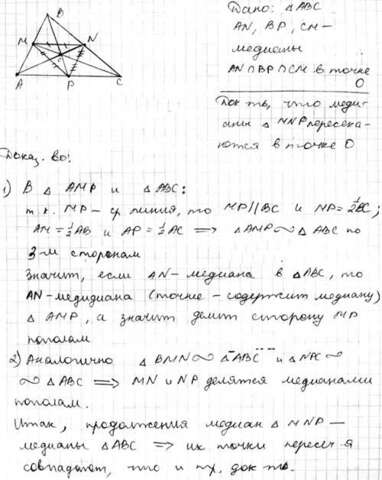 B
M N
A P C
Дано: △ABC
AN, BP, CM –
медианы
AN∩BP∩CM в точке
O
Док-ть, что меди-
аны △MNP пересека-
ются в точке O
Доказ-во:
1) В △AMP и △ABC:
т.к. MP – ср линия, то MP∥BC и MP=½BC;
AM=½AB и AP=½AC ⟹ △AMP∾△ABC по
3-м сторонам
Значит, если AN – медиана в △ABC, то
AN – медидиана (точнее – содержит медиану)
△AMP, а значит делит сторону MP
пополам
2) Аналогично △BMN∾△ABC и △NPC∾
∾△ABC ⟹ MN и NP делятся медианами
пополам.
Итак, продолжения медиан △MNP –
медианы △ABC ⟹ их точки пересеч-я
совпадают, что и тр. док-ть.